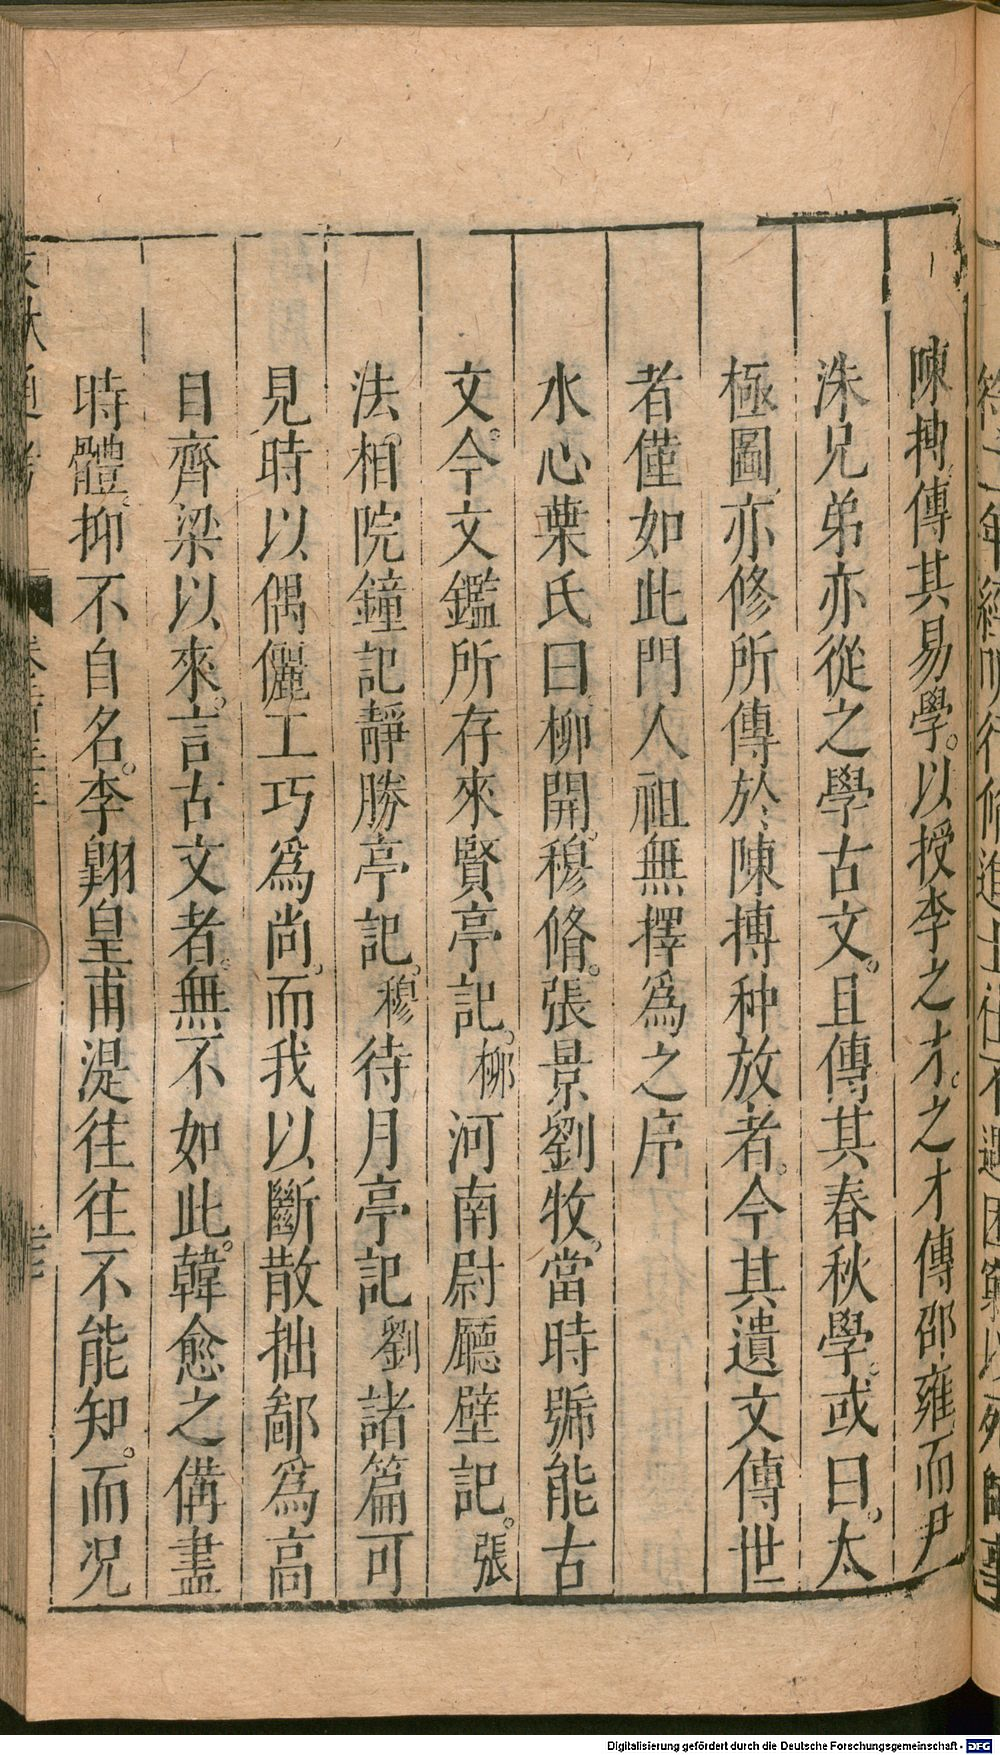 陳摶傳其易學。以授李之才。之才傳邵雍而尹
洙兄弟亦從之學古文。且傳其春秋學。或曰。太
極圖亦修所傳於陳摶种放者。今其遺文傳世
者僅如此門人祖無擇爲之序
水心葉氏曰柳開。穆脩。張景劉牧。當時號能古
文。今文鑑所存來賢亭記。柳河南尉廳壁記。張
法相院鐘記靜勝亭記。穆待月亭記劉諸篇可
見時以偶儷工巧爲尚。而我以斷散拙鄙爲高
自齊梁以來。言古文者。無不如此。韓愈之備盡
時體。抑不自名。李翺皇甫湜往往不能知。而况
Digitalisierung gefördert durch die Deutsche Forschungsgemeinschaft - DFG